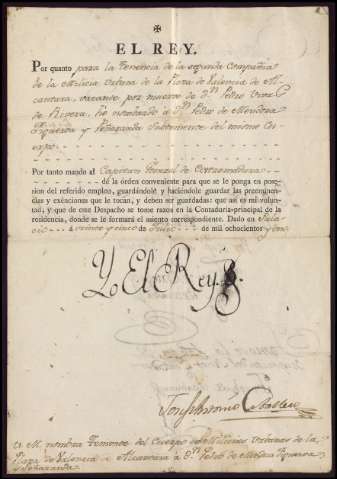 EL REY.
Por quanto para la Tenencia de la segunda Compañia
de la Milicia Urbana de la Plaza de Valencia de Al-
cantara, vacante por muerte de Dn. Pedro
de Rivera, he nombrado à Dn. Pedro de Mendoza
Figueroa y Peñaranda Subteniente del mismo Cu
erpo.
Por tanto mando al Capitan General de Extremadura
dé la órden conveniente para que se le ponga en pose-
sion del referido empleo, guardándole y haciéndole guardar las preeminen-
cias y exênciones que le tocan, y deben ser guardadas: que así es mi volun-
tad; y que de este Despacho se tome razon en la Contaduría-principal de la
residencia, donde se le formará el asiento correspondiente. Dado en Pala-
cio à veinte y cinco de Julio de mil ochocientos y
Yo El Rey
Josef Antonio Caballero
V. M. nombra Teniente del Cuerpo de Milicias Urbanas de la
Plaza de Valencia de Alcantara à Dn. Pedro de Mendoza Figueroa
y Peñaranda